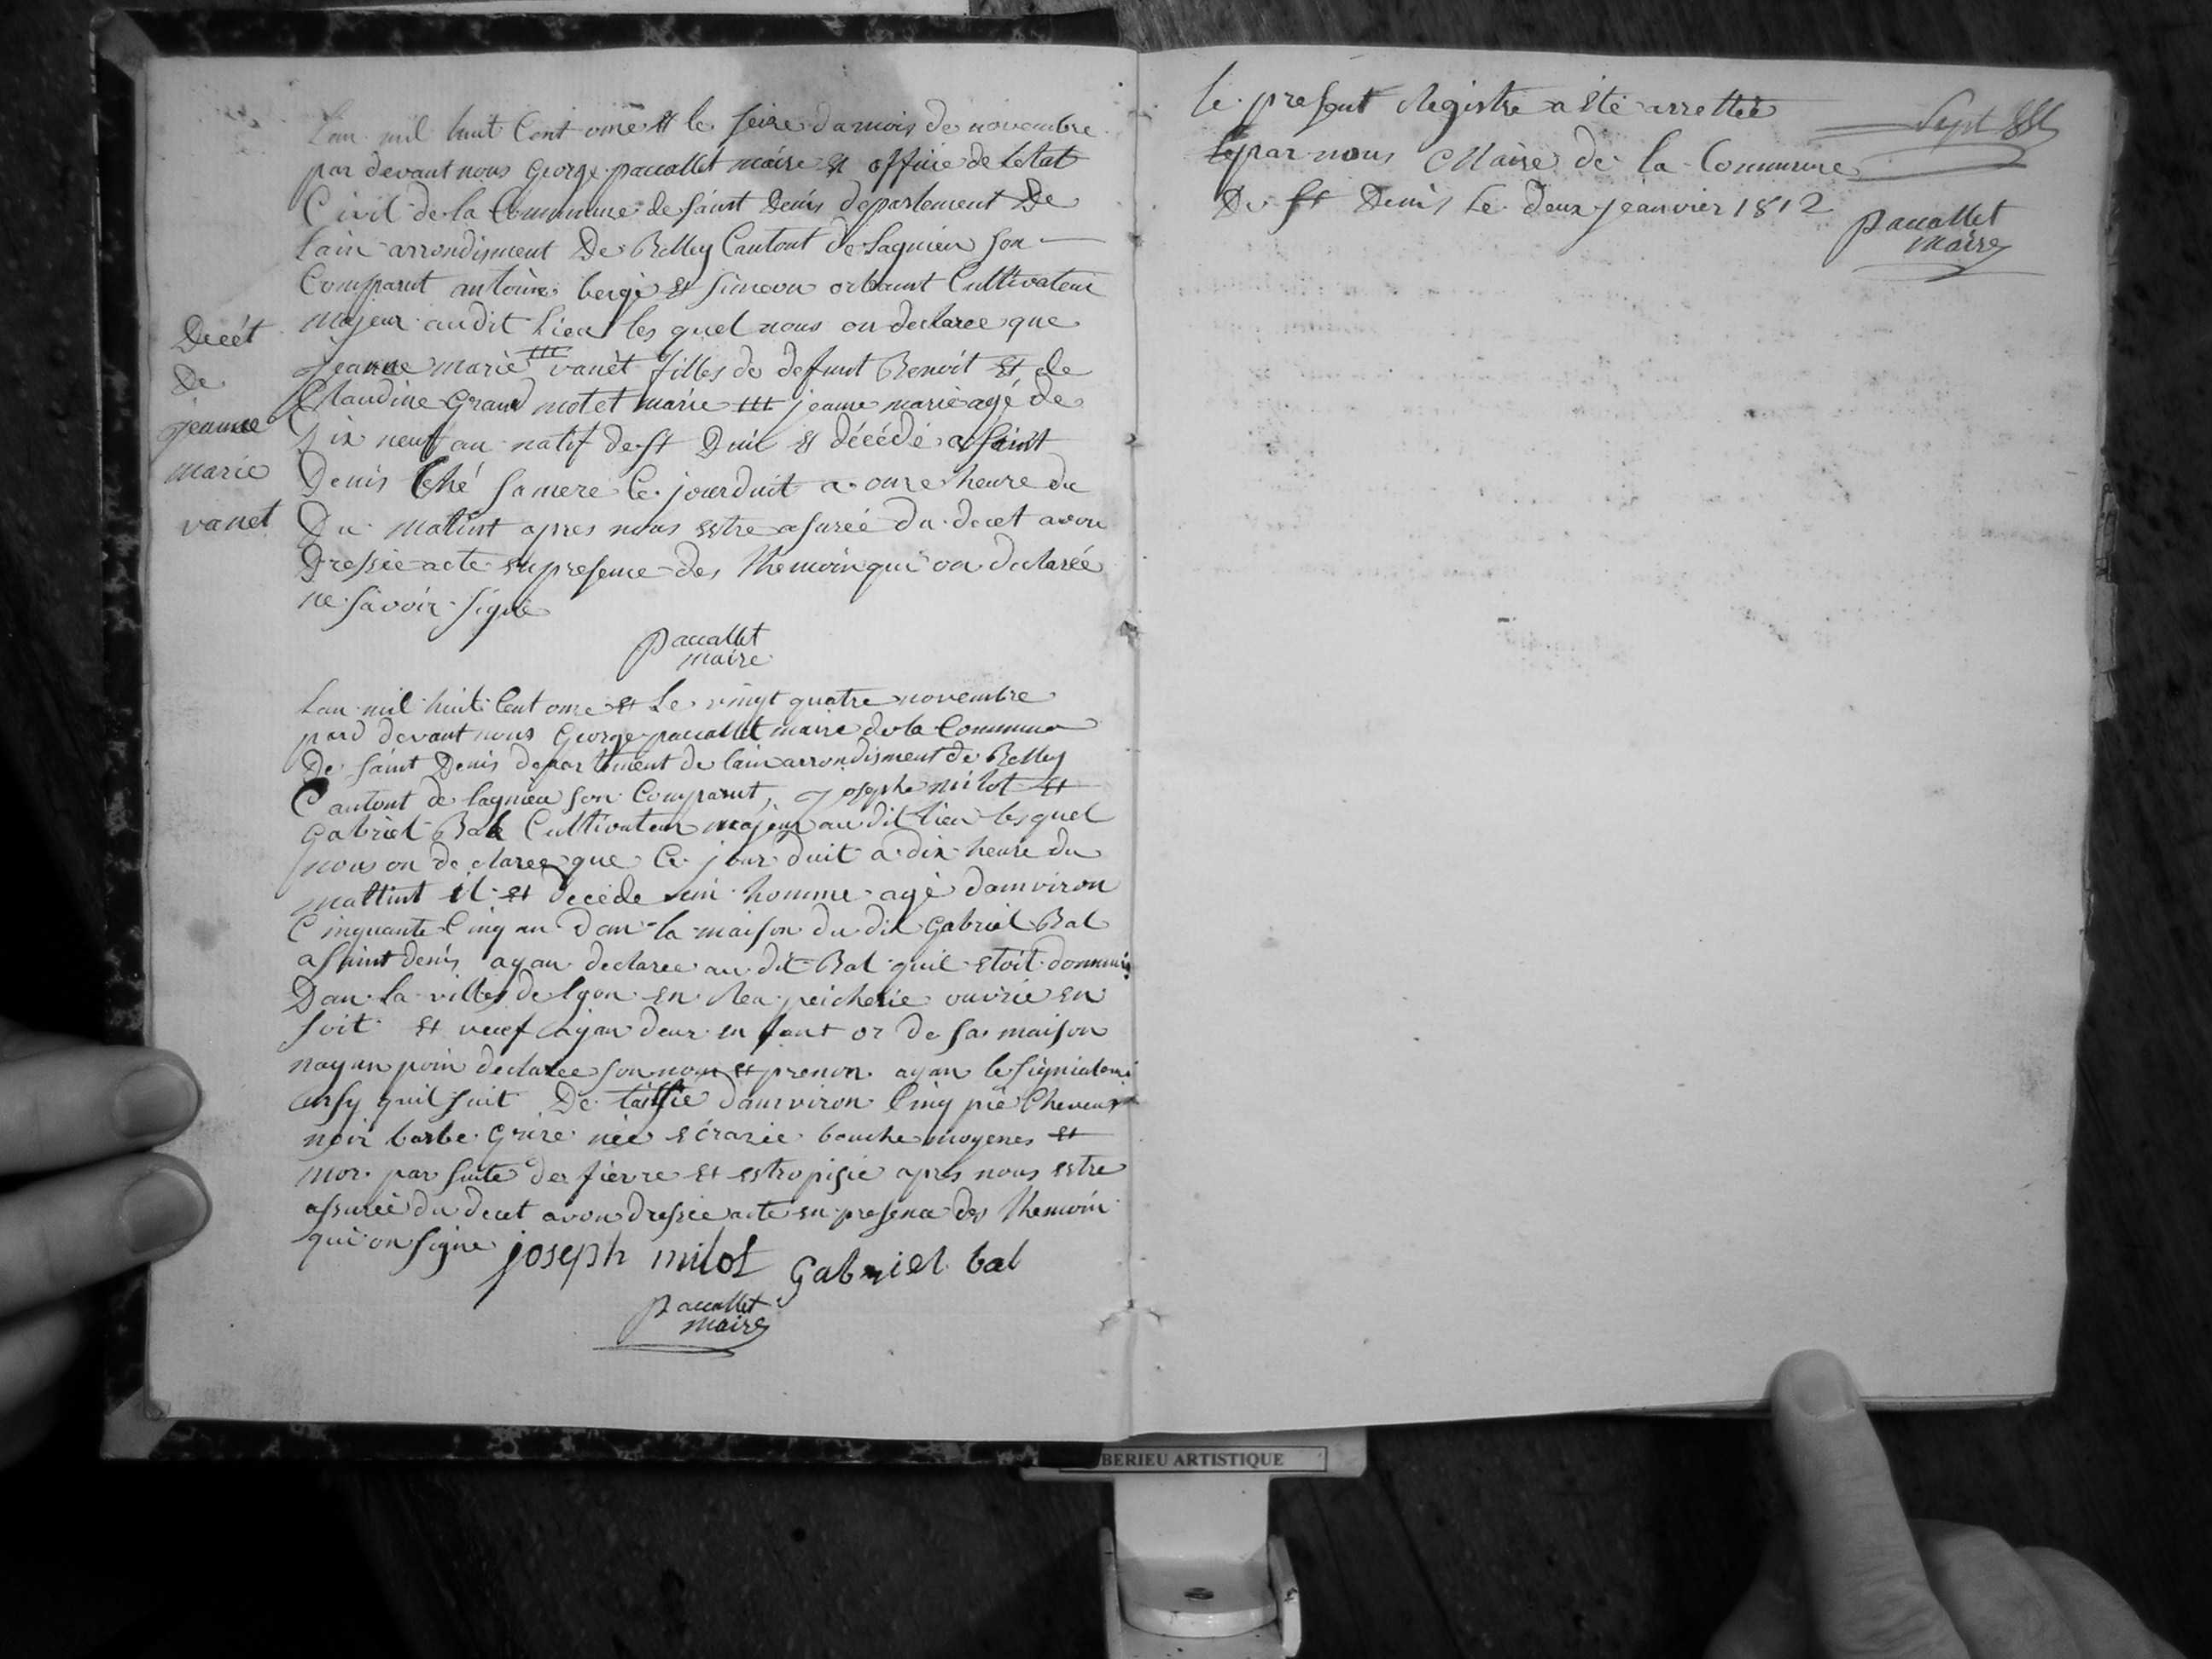 Lan mil huit Cent onze et le seize du mois de novembre
par devant nous George paccallet maire et officie de Letat
Civil de la Commune de saint Denis departement De
Lain arrondisment De Belley Cantont de Lagnieu son
Comparut antoine bergé et simeon orbaint Cultivateur
Majeur audit Lieu les quel nous on declaree que
jeanne marie ttt vanet filles de defunt Benoit et de
Claudine Grand motet marie ttt jeanne marie agé de
Dix neuf an natif de st Denis et décédé a saint
Denis Ché sa mere Ce jourduit a onze heure du
Du Matint apres nous estre asurée du decet avon
Dressée acte en presence des Themoin qui on declarée
ne savoir signé
paccallet
maire
Decét
De
jeanne
marie
vanet
Lan mil huit Cent onze et Le vingt quatre novembre
pard devant nous George paccallet maire de la Commune
De saint Denis departement de lain arrondisment de Belley
Cantont de lagnieu son Comparut, josephe milot et
Gabriel Bal Cultivateur majeur au dit lieu lesquel
nous on declaree que Ce jour duit a dix heure du
mattint il et decede un homme agé damviron
Cinquante Cinq an Dan la maison du dit Gabriel Bal
a saint denis ayan declaree au dit Bal quil etoit
Dan la villes de lyon en ouvrié en
soit et veuf ayan deux enfant or de sa maison
nayan poin declaree son nom et prenon ayan le
ensy quil suit De taillie damviron Cinq pié Cheveux
noir barbe Grize née écrazée bouche moyenes et
mor par suite de fievre et estropisie apres nous estre
assurée du decet avon dressée acte en presence des Themoin
qui on signe joseph milot Gabriel bal
paccallet
maire
le present Registre a été arrettée
par nous Maire de la Commune
De st Denis Le deux jeanvier 1812
Sept
paccallet
maire
BERIEU ARTISTIQUE